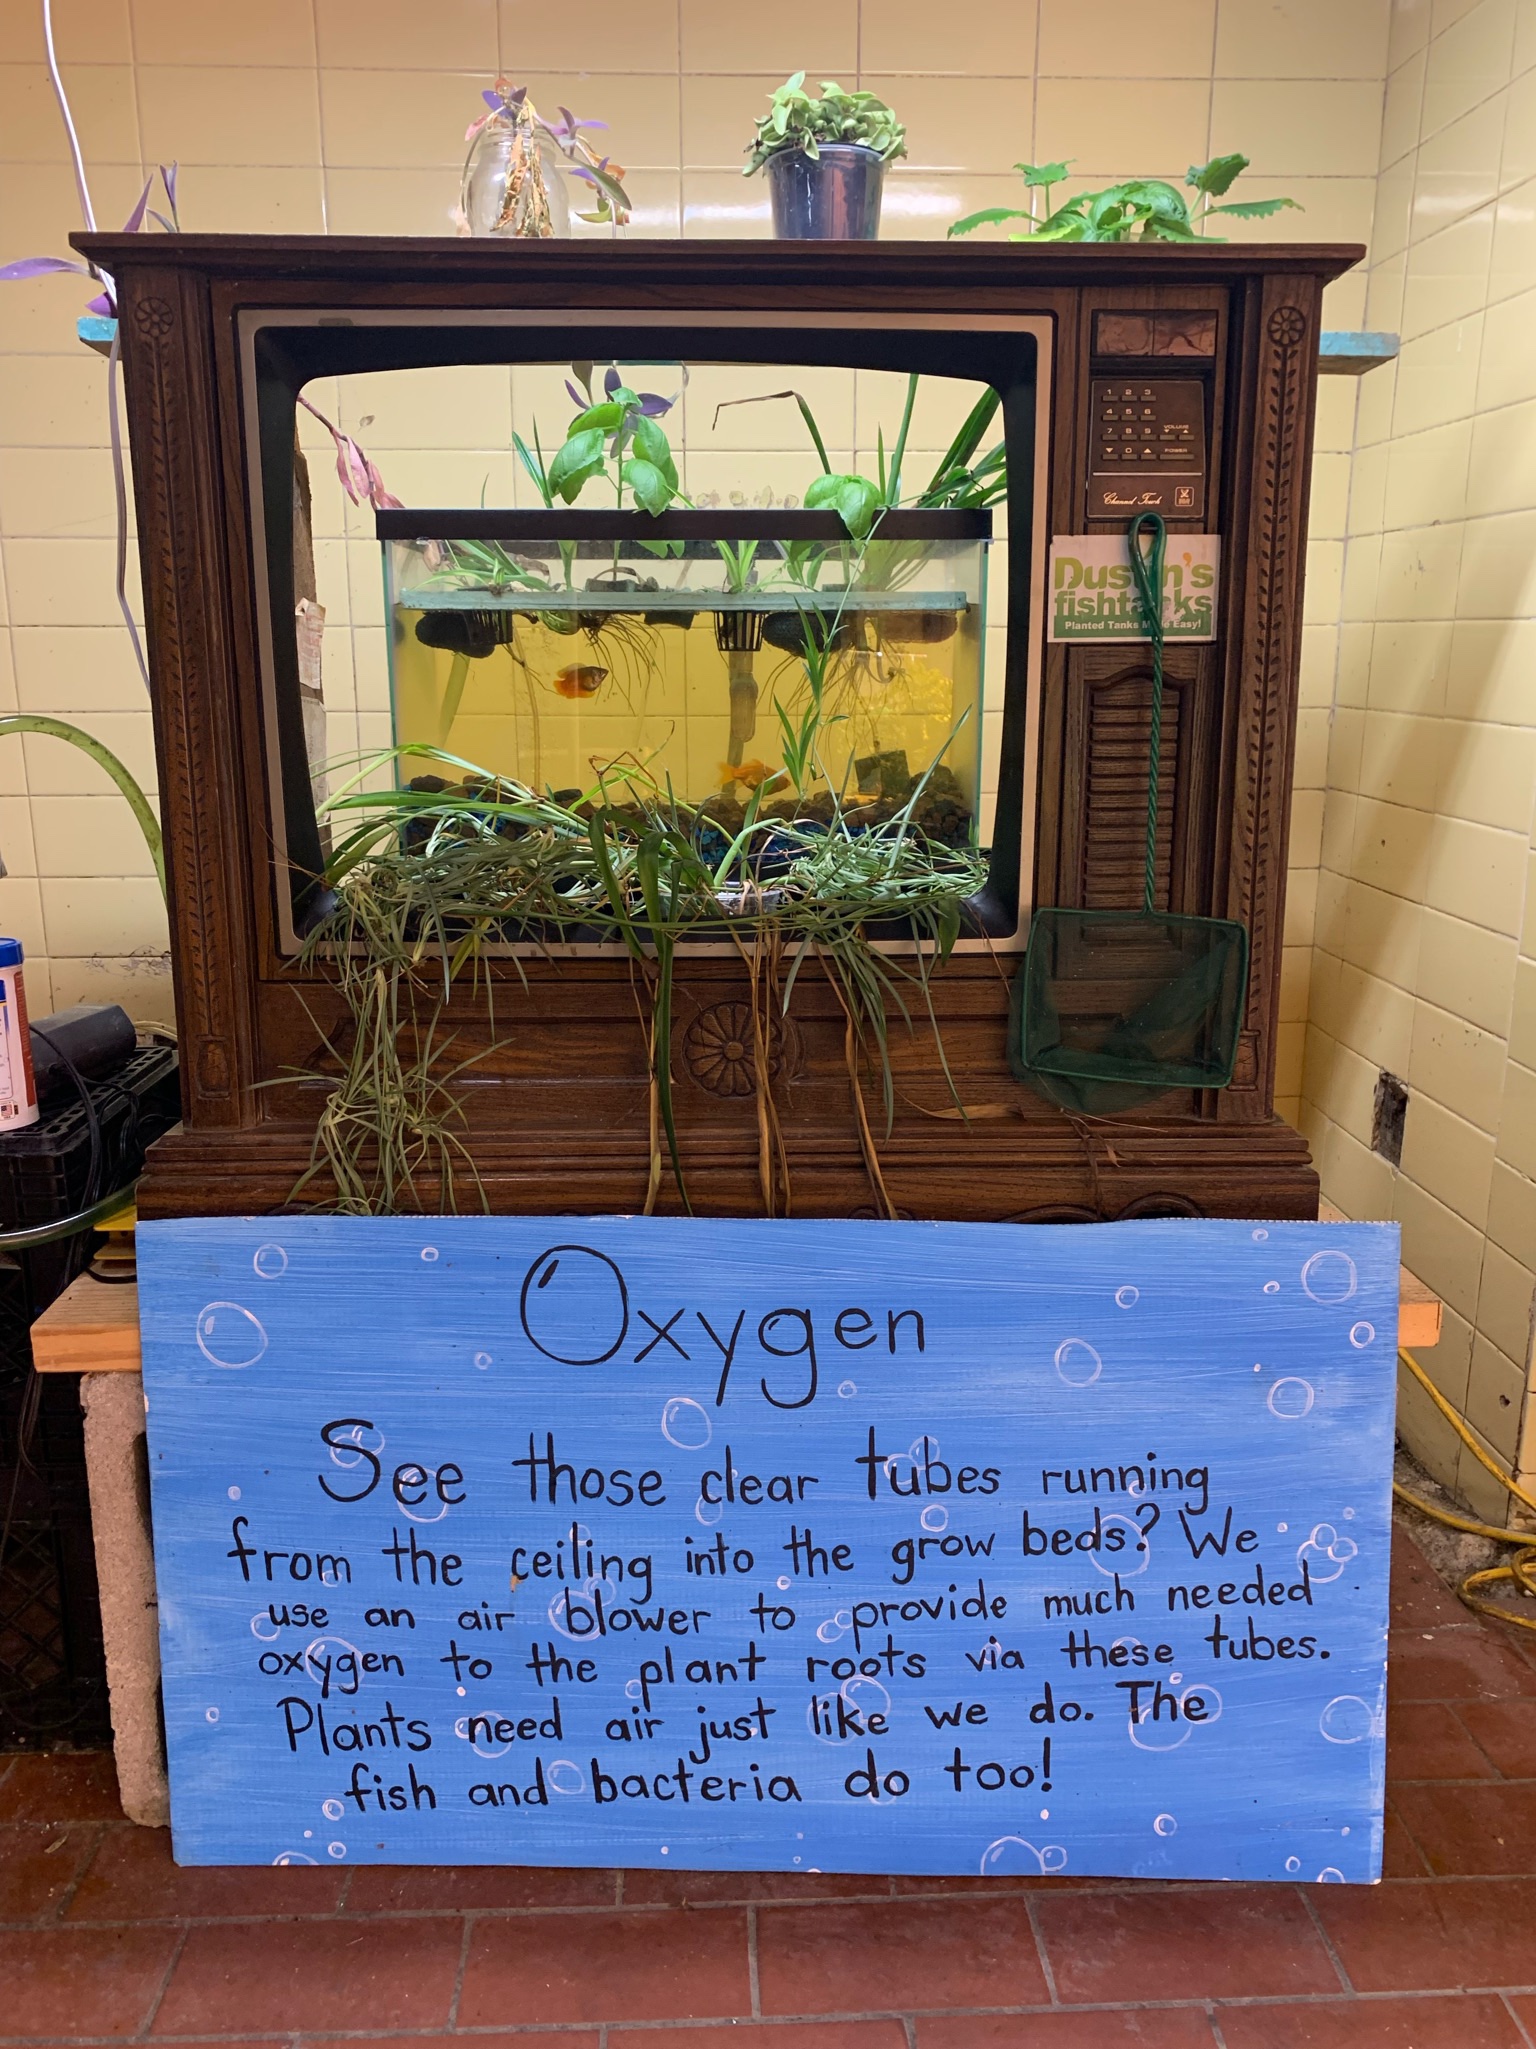 1 2 3
4 5 6
7 8 9 VOLUME
0 POWER
Channel Touch
Dustin's
fishtanks
Planted Tanks Made Easy!
Oxygen
See those clear tubes running
from the ceiling into the grow beds? We
use an air blower to provide much needed
oxygen to the plant roots via these tubes.
Plants need air just like we do. The
fish and bacteria do too!